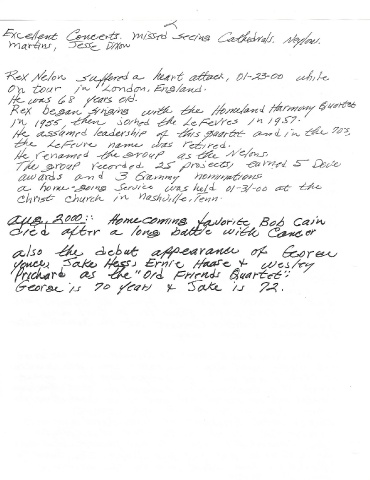 Excellent Concerts. missed seeing Cathedrals. Naylow.
martins, Jesse Dixon
Rex Nelon suffered a heart attack, 01-23-00 while
on tour in London, England.
He was 68 years old.
Rex began singing with the Homeland Harmony Quartet
in 1955, then joined the LeFevres in 1957.
He assumed leadership of this quartet and in the 70's,
the LeFevre name was retired.
He renamed the group as the Nelons.
The group recorded 25 projects, earned 5 Dove
awards and 3 Grammy nominations
a home-going service was held 01-31-00 at the
Christ church in Nashville, Tenn.
Aug, 2000:: Homecoming favorite Bob Cain
died after a long battle with Cancer
also the debut appearance of George
Younce, Jake Hess, Ernie Haase & Wesley
Prichard as the "Old Friends Quartet":
George is 70 years & Jake is 72.